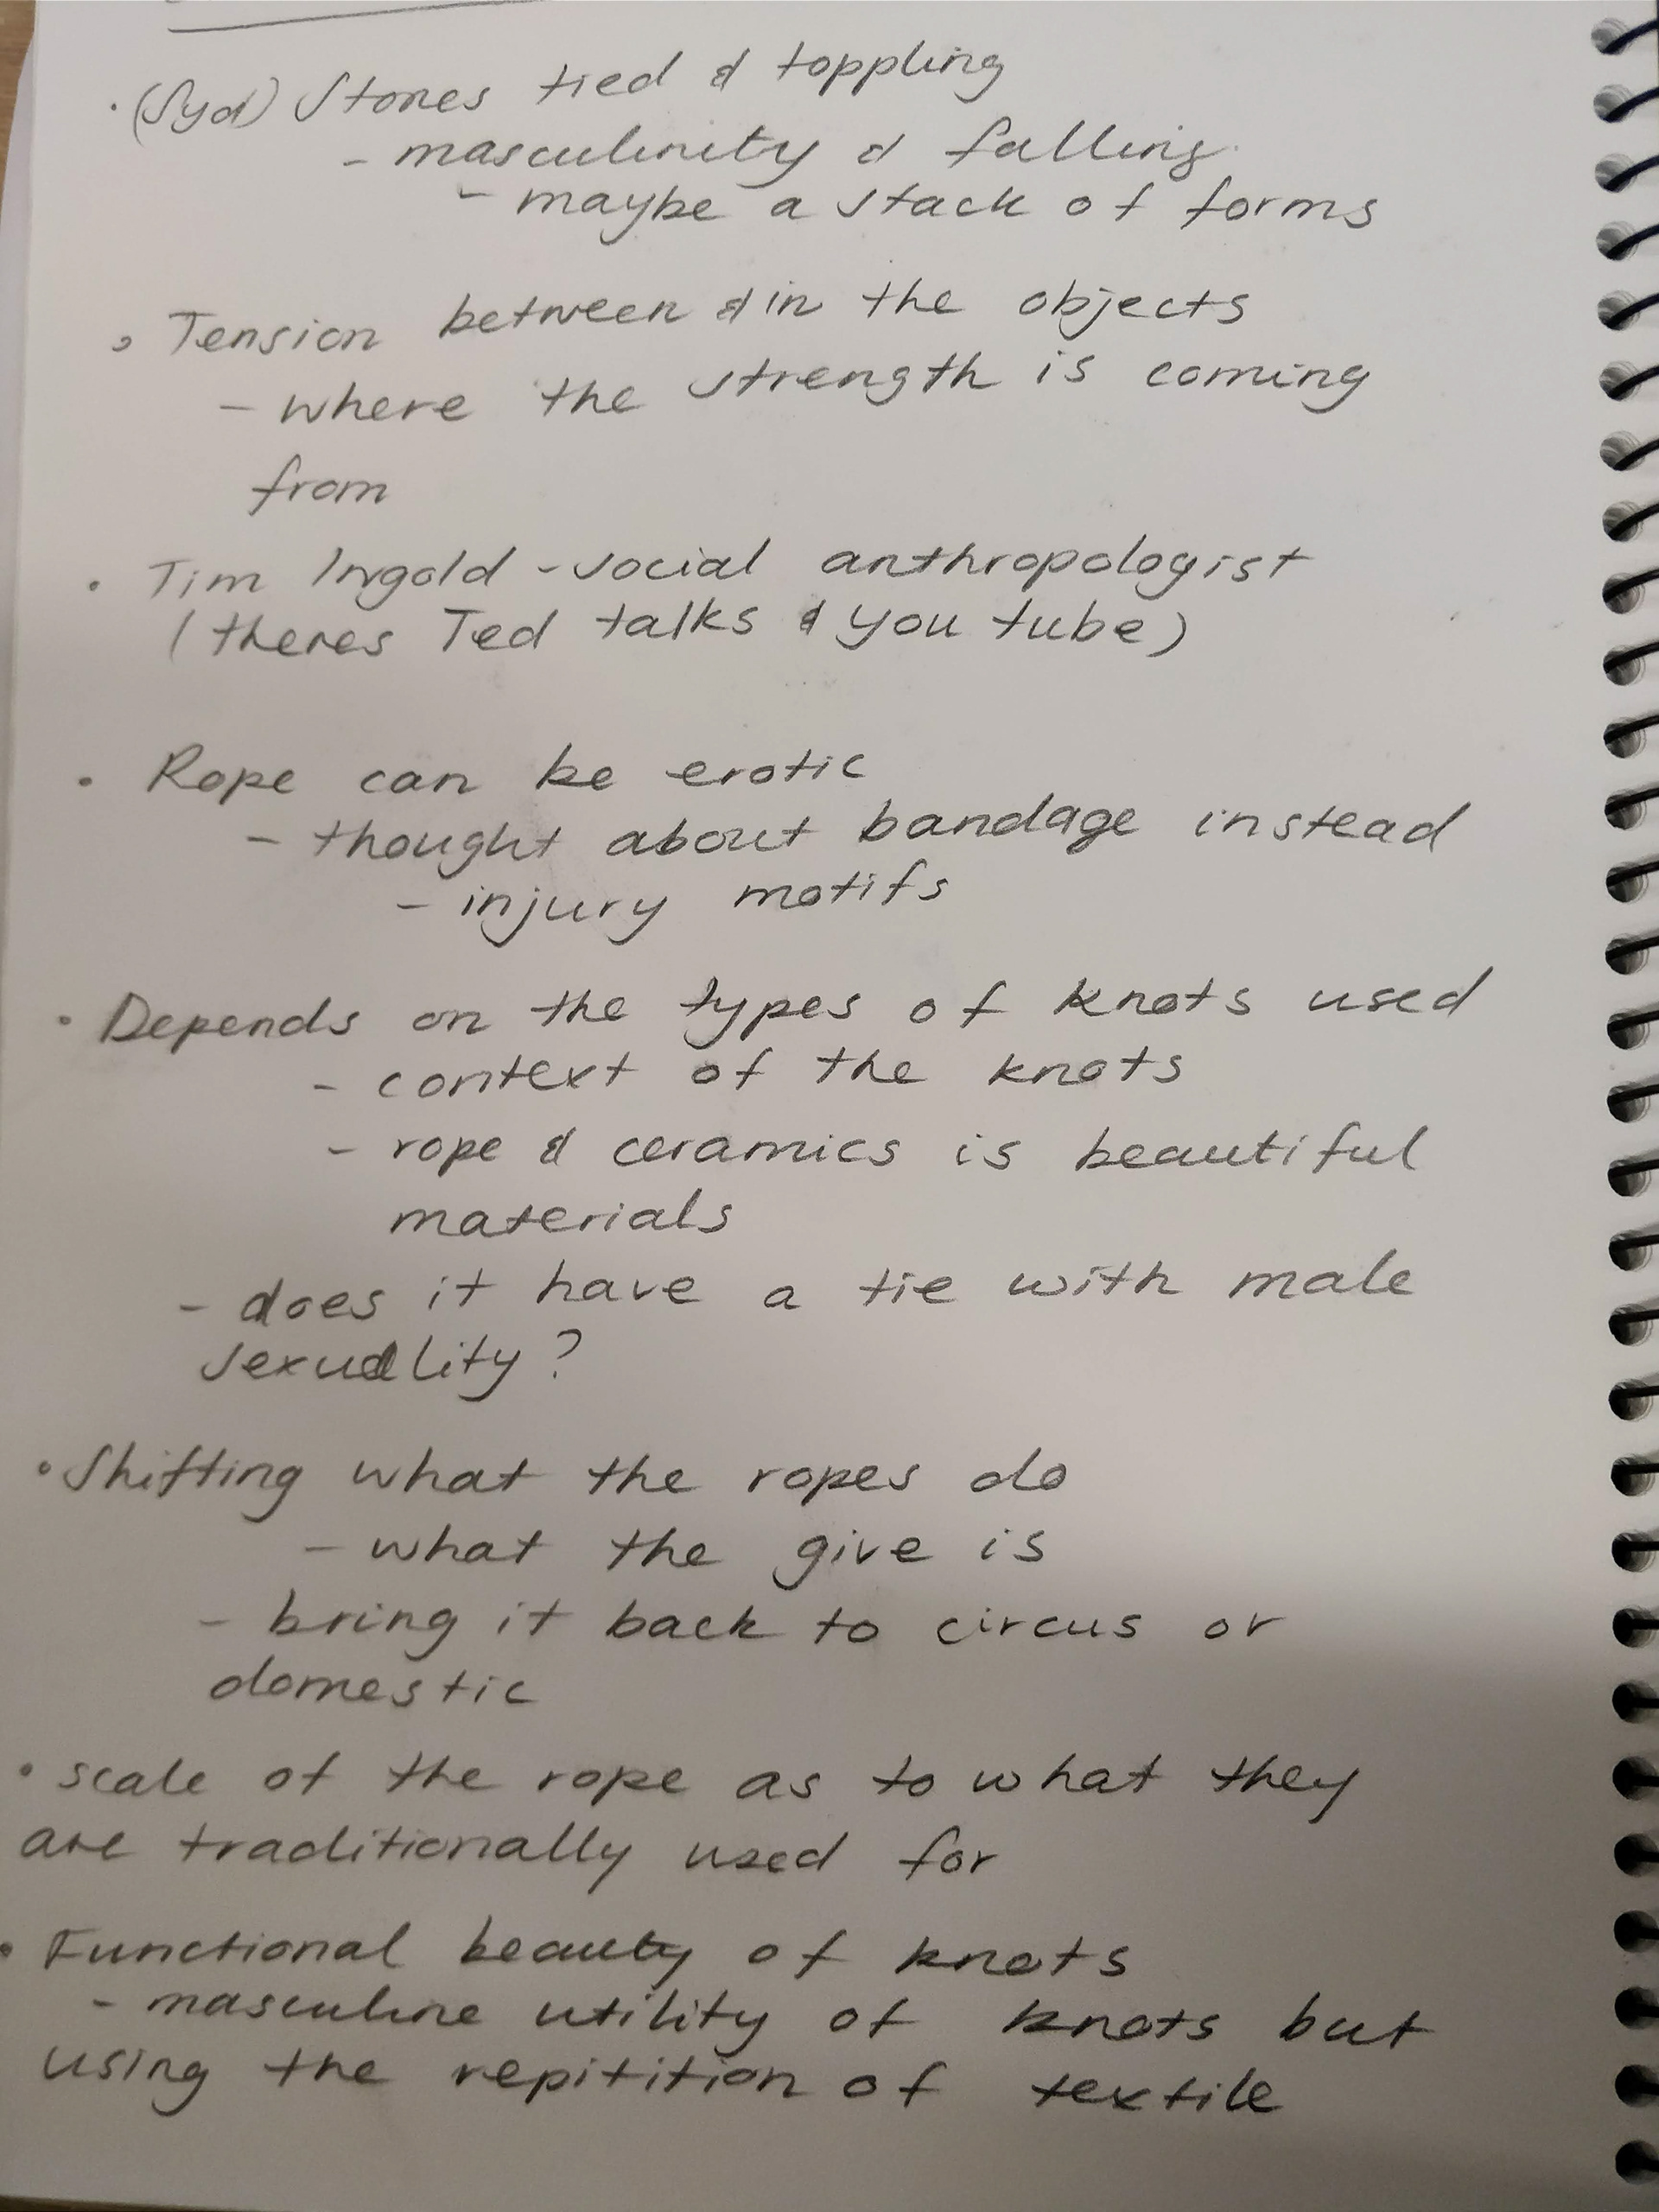 · (Syd) Stones tied & toppling
- masculinity & falling
- maybe a stack of forms
· Tension between & in the objects
- where the strength is coming
from
· Tim Ingold - social anthropologist
(theres Ted talks & you tube)
· Rope can be erotic
- thought about bandage instead
- injury motifs
· Depends on the types of knots used
- context of the knots
- rope & ceramics is beautiful
materials
- does it have a tie with male
sexuality?
· Shifting what the ropes do
- what the give is
- bring it back to circus or
domestic
· scale of the rope as to what they
are traditionally used for
· Functional beauty of knots
- masculine utility of knots but
using the repitition of textile